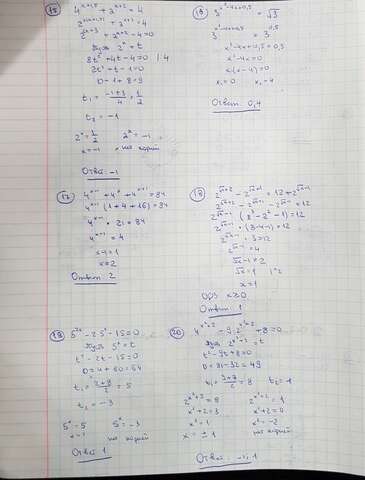 15
4^(x+0,5) + 2^(x+2) = 4
2^(2x+1) + 2^(x+2) = 4
2^(2x+3) + 2^(x+2) - 4 = 0
Пусть 2^x = t
8t² + 4t - 4 = 0 | 4
2t² + t - 1 = 0
D = 1 + 8 = 9
t₁ = (-1+3)/4 = 1/2
t₂ = -1
2^x = 1/2 2^x = -1
x = -1 нет корней
Ответ: -1
16
3^(x²-4x+0,5) = √3
3^(x²-4x+0,5) = 3^0,5
x² - 4x + 0,5 = 0,5
x² - 4x = 0
x(x - 4) = 0
x₁ = 0 x = 4
Ответ: 0, 4
17
4^(x-1) + 4^x + 4^(x+1) = 84
4^(x-1) (1 + 4 + 16) = 84
4^(x-1) · 21 = 84
4^(x-1) = 4
x - 1 = 1
x = 2
Ответ: 2
18
2^(√x+2) - 2^(√x+1) = 12 + 2^(√x-1)
2^(√x+2) - 2^(√x+1) - 2^(√x-1) = 12
2^(√x-1) (2³ - 2² - 1) = 12
2^(√x-1) · (8-4-1) = 12
2^(√x-1) · 3 = 12
2^(√x-1) = 4
√x - 1 = 2
x = 1
ОДЗ x ≥ 0
Ответ: 1
19
5^2x - 2·5^x - 15 = 0
Пусть 5^x = t
t² - 2t - 15 = 0
D = 4 + 60 = 64
t₁ = (2+8)/2 = 5
t₂ = -3
5^x = 5 5^x = -3
x = 1 нет корней
Ответ: 1
20
4^(x²+2) - 9·2^(x²+2) + 8 = 0
Пусть 2^(x²+2) = t
t² - 9t + 8 = 0
D = 81 - 32 = 49
t₁ = (9+7)/2 = 8 t₂ = 1
2^(x²+2) = 8 2^(x²+2) = 1
x² + 2 = 3 x² + 2 = 0
x² = 1 x² = -2
x = ± 1 нет корней
Ответ: -1; 1